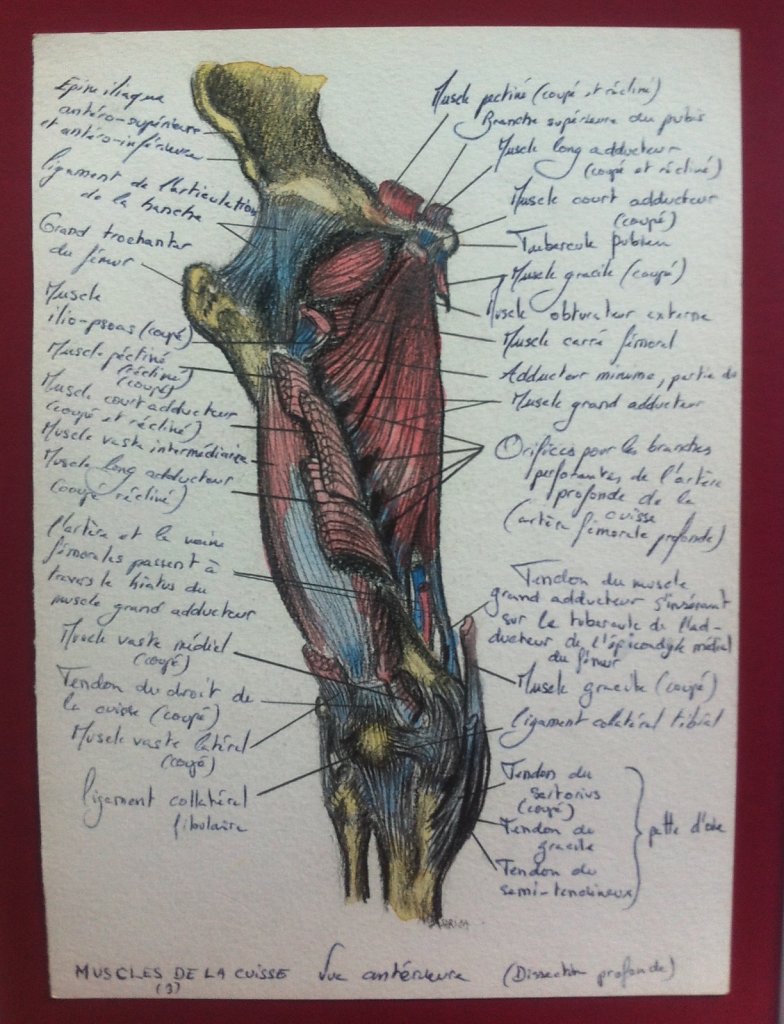 Epine iliaque
antéro-supérieure
et antéro-inférieure
ligament de l'articulation
de la hanche
Grand trochanter
du fémur
Muscle
ilio-psoas (coupé)
Muscle pectiné
(récliné)
(coupé)
Muscle court adducteur
(coupé et récliné)
Muscle vaste intermédiaire
Muscle long adducteur
(coupé récliné)
l'artère et la veine
fémorales passent à
travers le hiatus du
muscle grand adducteur
Muscle vaste médial
(coupé)
Tendon du droit de
la cuisse (coupé)
Muscle vaste latéral
(coupé)
ligament collatéral
fibulaire
Muscle pectiné (coupé et récliné)
Branche supérieure du pubis
Muscle long adducteur
(coupé et récliné)
Muscle court adducteur
(coupé)
Tubercule pubien
Muscle gracile (coupé)
Muscle obturateur externe
Muscle carré fémoral
Adducteur minume, partie du
Muscle grand adducteur
Orifices pour les branches
perforantes de l'artère
profonde de la
cuisse
(artère fémorale profonde)
Tendon du muscle
grand adducteur s'insérant
sur le tubercule de l'ad-
ducteur de l'épicondyle médial
du fémur
Muscle gracile (coupé)
ligament colatéral tibial
Tendon du
sartorius
(coupé)
Tendon du
gracile
Tendon du
semi-tendineux
patte d'oie
MUSCLES DE LA CUISSE Vue antérieure (Dissection profonde)
(3)